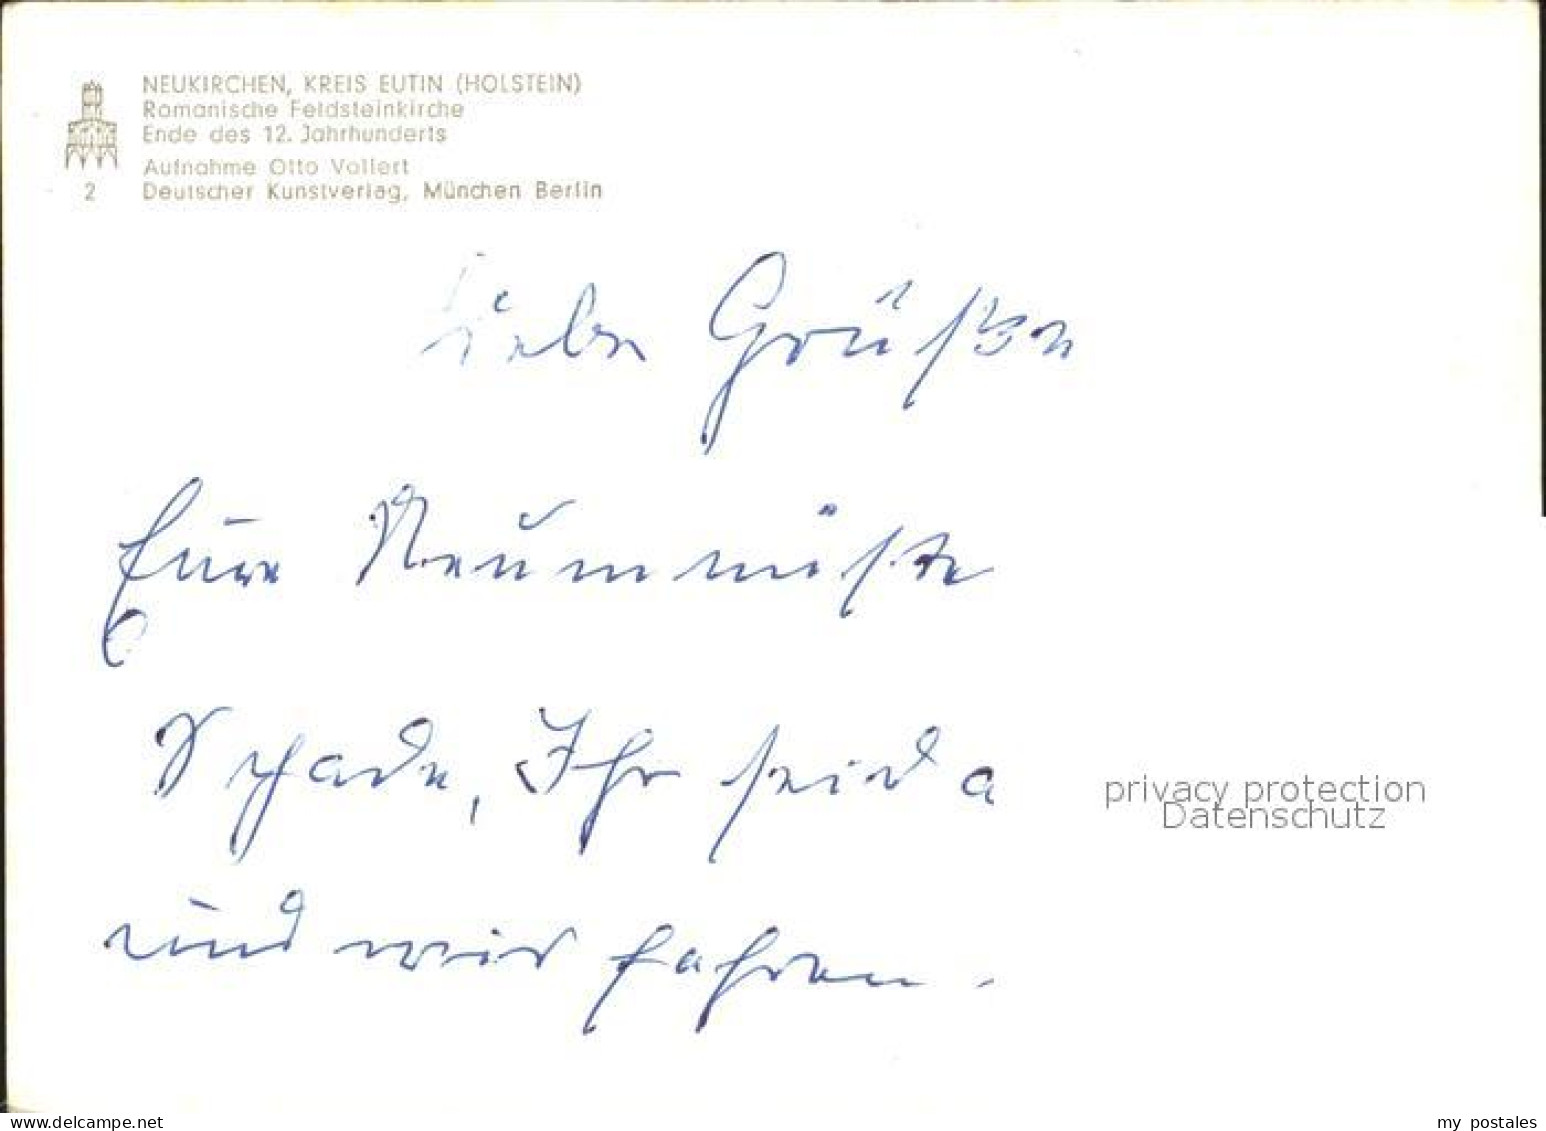 NEUKIRCHEN, KREIS EUTIN (HOLSTEIN)
Romanische Feldsteinkirche
Ende des 12. Jahrhunderts
Aufnahme Otto Vollert
2 Deutscher Kunstverlag, München Berlin
Liebe Grüße
Eure
Schade, Ihr seid a
und wir fahren.
privacy protection
Datenschutz
www.delcampe.net
my postales